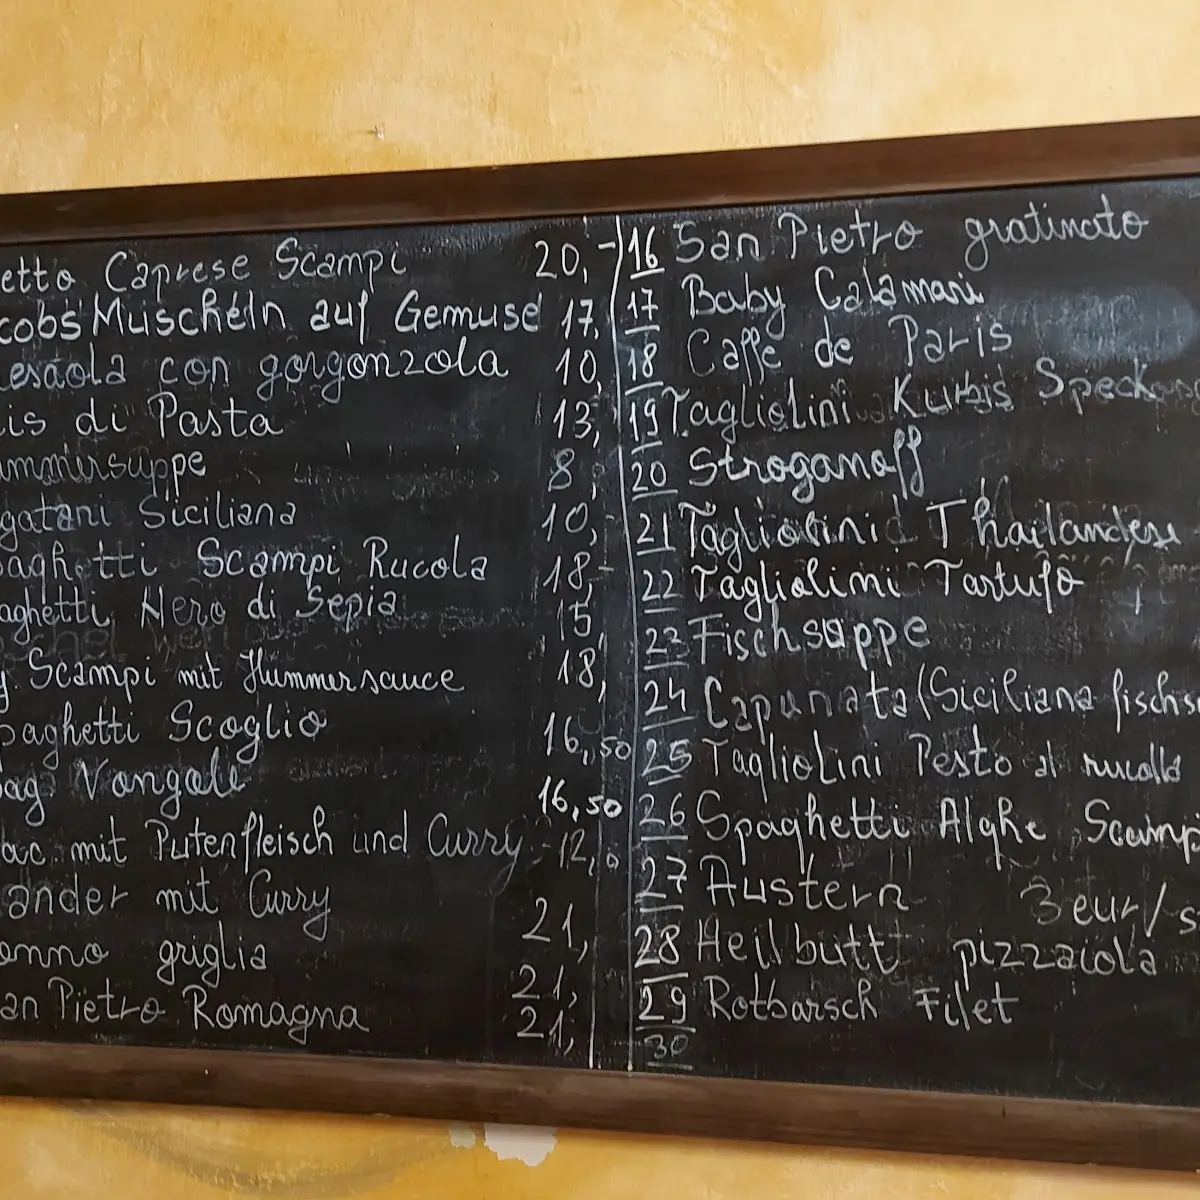 etto Caprese Scampi 20,-
cobs Muscheln auf Gemuse 17,
esaola con gorgonzola 10,
is di Pasta 13,
ummersuppe 8,
gatani Siciliana 10,
aghetti Scampi Rucola 18,-
aghetti Nero di Sepia 15,
Scampi mit Hummersauce 18,
paghetti Scoglio 16,50
ag Vongole 16,50
ac. mit Putenfleisch und Curry 12,0
ander mit Curry 21,
onno griglia 21,
an Pietro Romagna 21,
16 San Pietro gratinato
17 Baby Calamari
18 Caffe de Paris
19 Tagliolini Kurbis Speck
20 Stroganoff
21 Tagliolini Thailandese
22 Tagliolini Tartufo
23 Fischsuppe
24 Capunata (Siciliana fischs
25 Tagliolini Pesto al rucolla
26 Spaghetti Alghe Scamp
27 Austern 3 eur/s
28 Heilbutt pizzaiola
29 Rotbarsch Filet
30